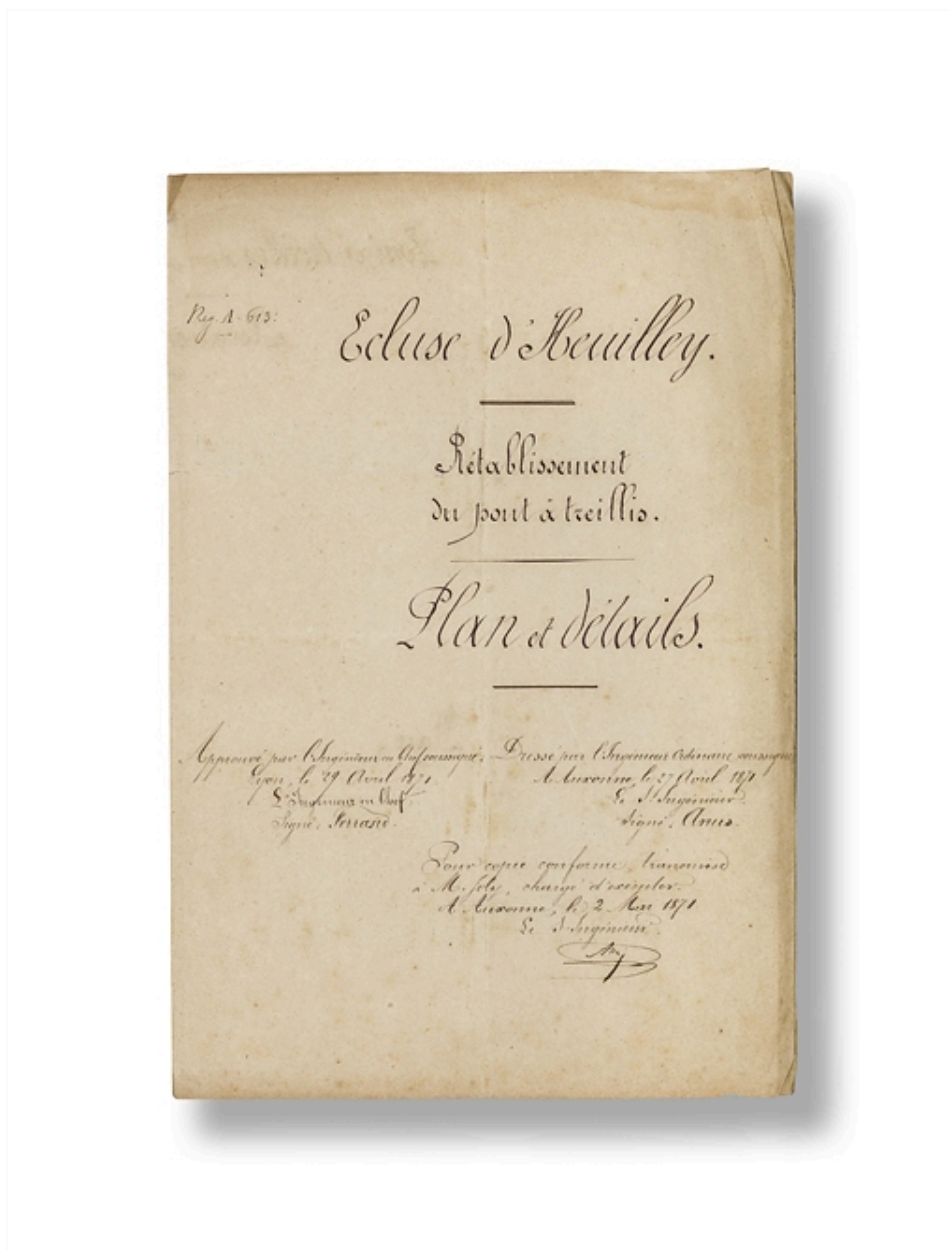 Reg. A. 613:
Ecluse d'Heuilley.
Rétablissement
du pont à treillis.
Plan et détails.
Approuvé par l'Ingénieur en Chef soussigné.
Lyon, le 29 Avril 1871.
L'Ingénieur en Chef.
Signé:
Dressé par l'Ingénieur Ordinaire soussigné
A Auxonne, le 27 Avril 1871
Le S. Ingénieur.
Signé:
Pour copie conforme, transmise
à M. Joly, chargé d'exécuter.
A Auxonne, le 2 Mai 1871
Le S. Ingénieur.